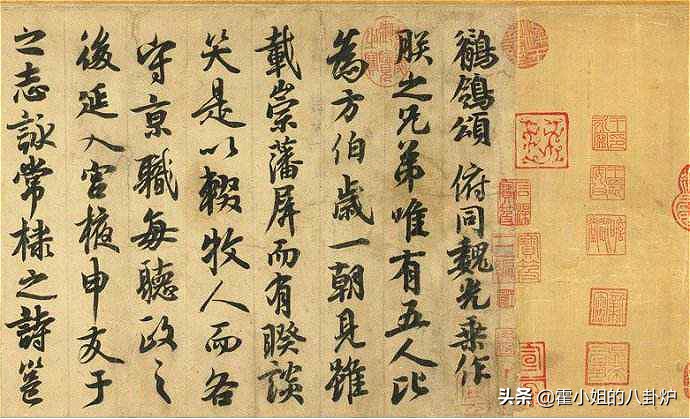 鶺鴒頌 俯同魏光乗作
朕之兄弟唯有五人比
為方伯歳一朝見雖
載崇藩屏而有睽談
笑是以輟牧人而各
守京職每聽政之
後延入宮掖申友于
之志詠常棣之詩邕
头条 @霍小姐的八卦炉